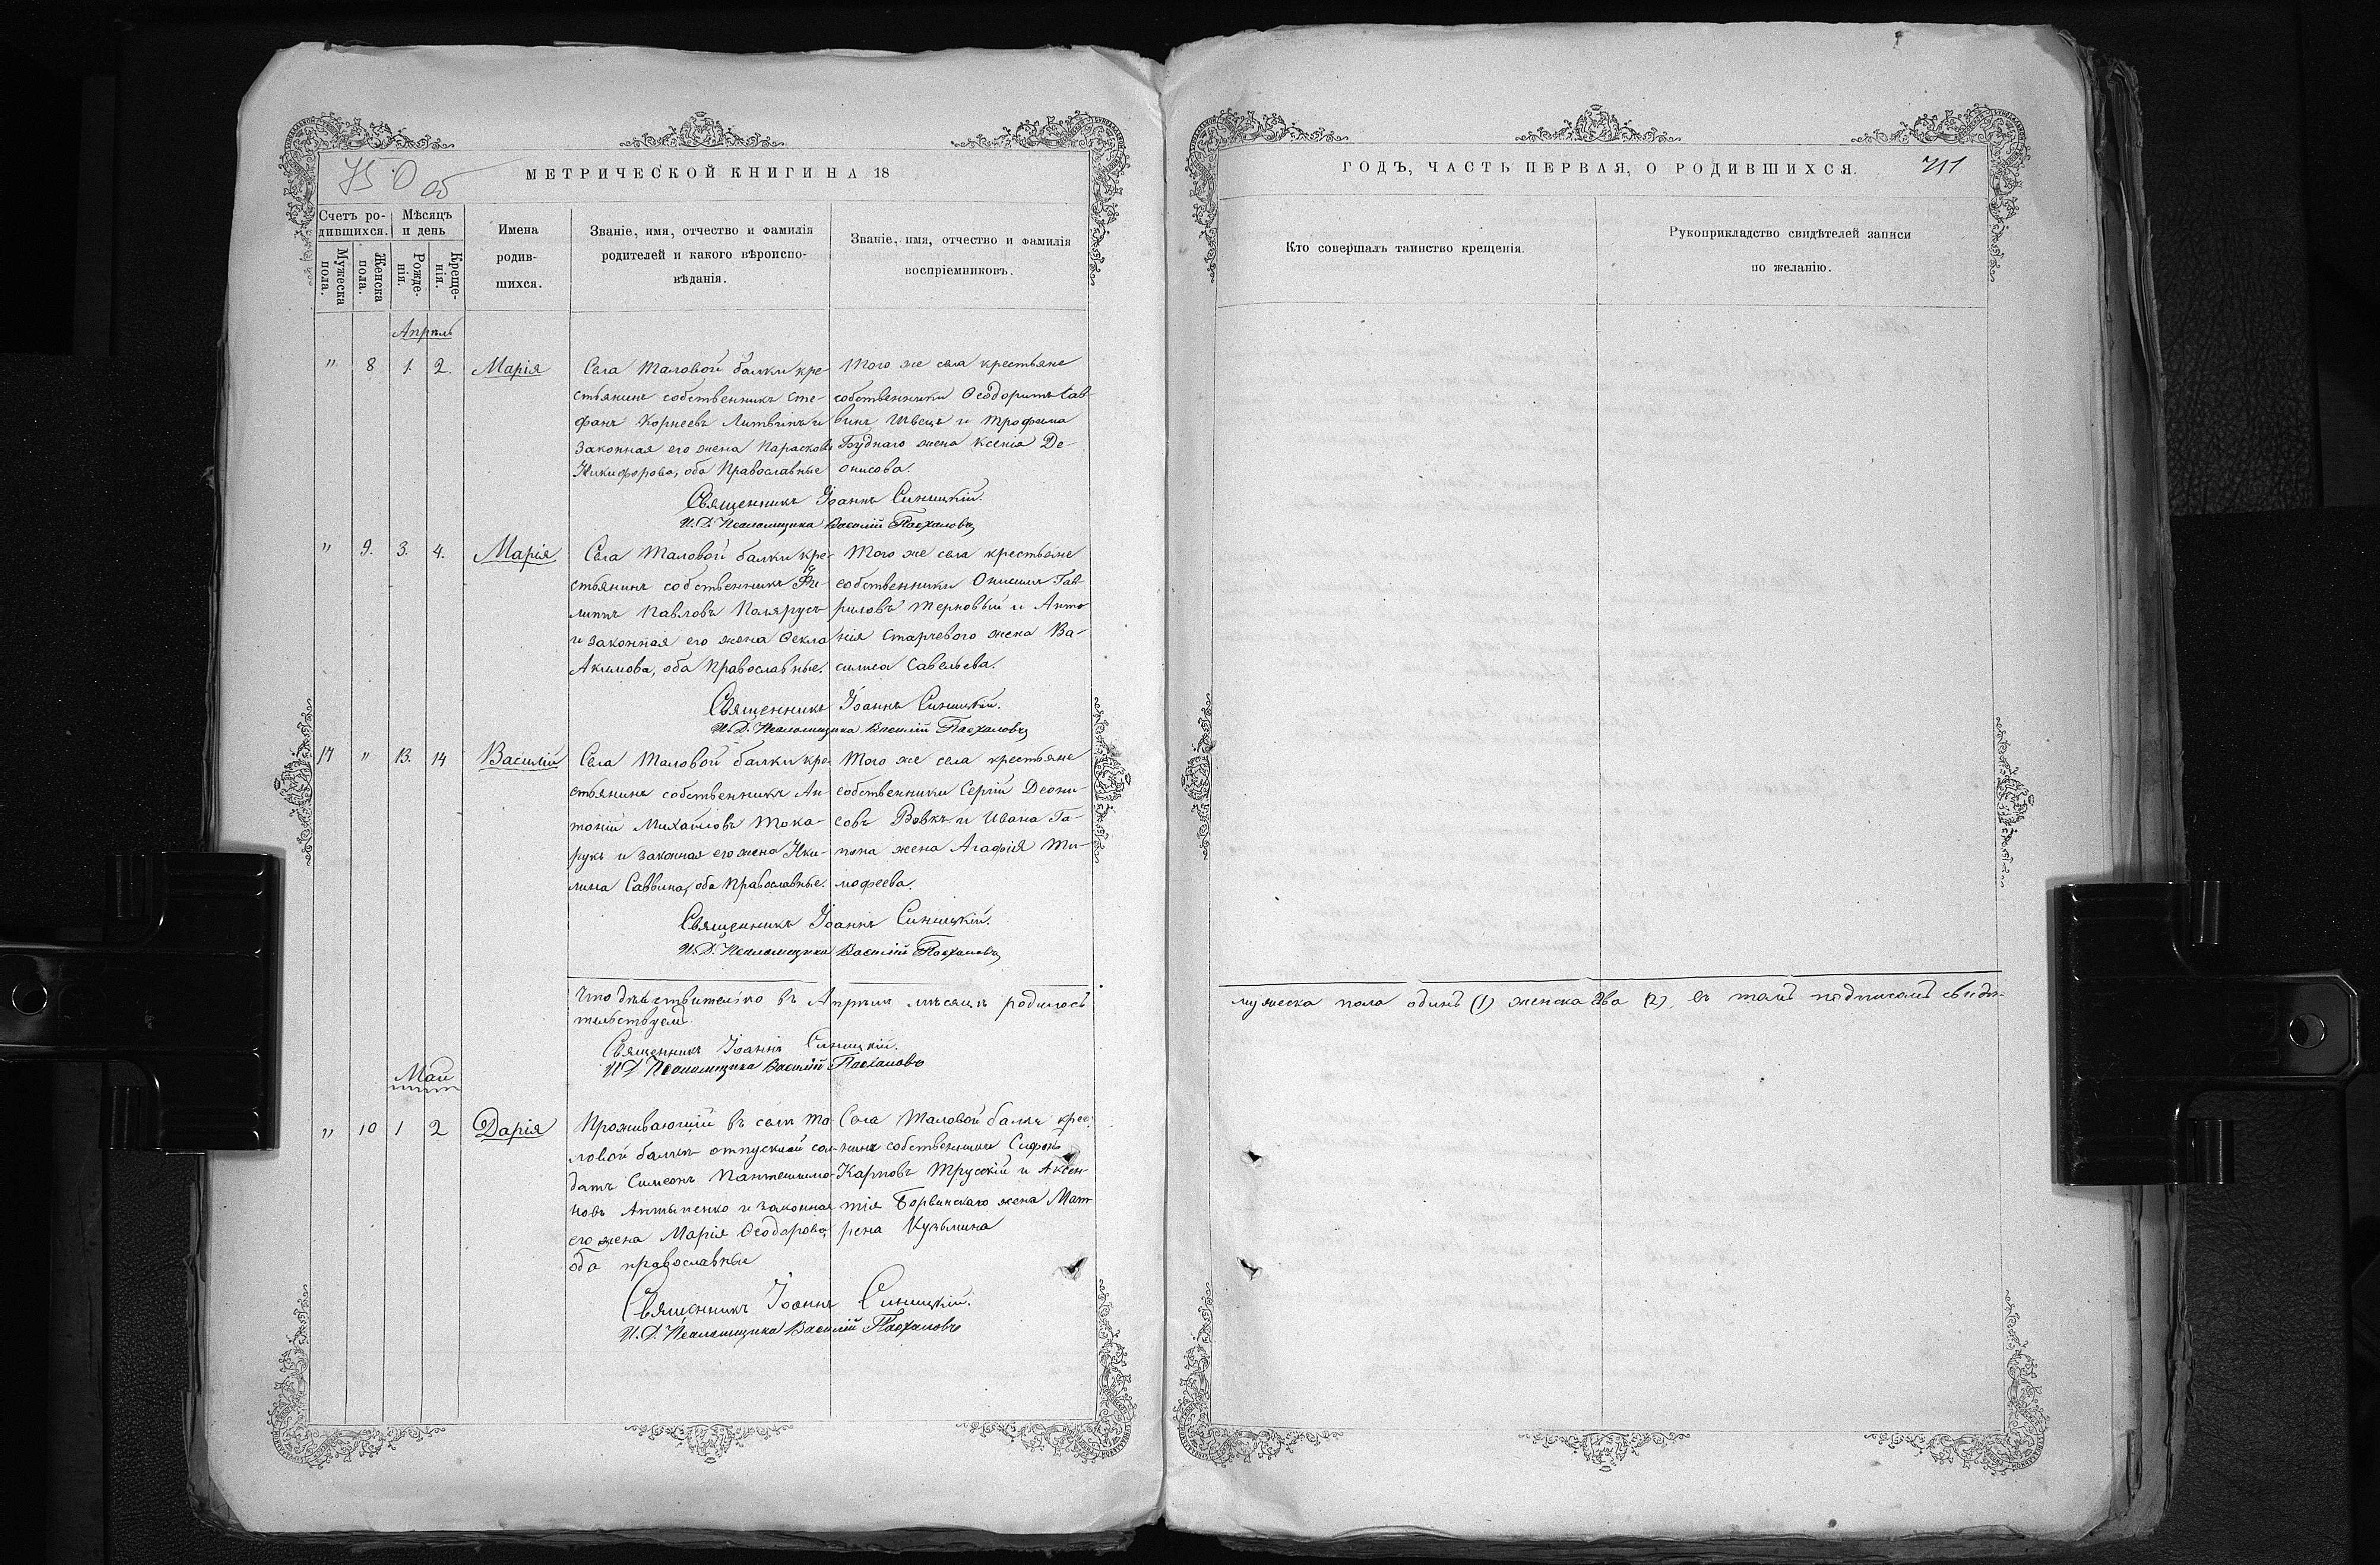 МЕТРИЧЕСКОЙ КНИГИ НА 18
Счетъ ро-
дившихся.
Мѣсяцъ
и день
Мужеска
пола.
Женска
пола.
Рожде-
нія.
Креще-
нія.
Имена
родив-
шихся.
Званіе, имя, отчество и фамилія
родителей и какого вѣроиспо-
вѣданія.
Званіе, имя, отчество и фамилія
воспріемниковъ.
Апрѣль
" 8 1 2. Марія
Села Таловой балки кре-
стьянинъ собственникъ Сте-
фанъ Корнеевъ Литвинъ и
законная его жена Параскева
Никифорова, оба Православные
Того же села крестьяне
собственники Ѳеодоритъ Сав-
винъ Швецъ и Трофима
Буднаго жена Ксенія Де-
онисова.
Священникъ Іоаннъ Синицкій.
И. Д. Псаломщика Василій Пасхаловъ
" 9. 3. 4. Марія
Села Таловой балки кре-
стьянинъ собственникъ Фи-
липпъ Павловъ Поляруст
и законная его жена Ѳекла
Акимова, оба Православные.
Того же села крестьяне
собственники Онисимъ Гав-
риловъ Терновый и Анто-
нія Старчевого жена Ва-
силиса Савельева.
Священникъ Іоаннъ Синицкій.
И. Д. Псаломщика Василій Пасхаловъ
14 " 13. 14 Василій
Села Таловой балки кре-
стьянинъ собственникъ Ан-
тоній Михайловъ Тока-
рукъ и законная его жена Аки-
лина Саввина, оба Православные.
Того же села крестьяне
собственники Сергій Деони-
совъ Вовкъ и Ивана Га-
пона жена Агафія Ти-
мофеева.
Священникъ Іоаннъ Синицкій.
И. Д. Псаломщика Василій Пасхаловъ
Что дѣйствительно въ Апрѣлѣ мѣсяцѣ родилось
тельствуемъ
Священникъ Іоаннъ Синицкій.
И. Д. Псаломщика Василій Пасхаловъ
Май
" 10 1 2 Дарія
Проживающій въ селѣ Та-
ловой балкѣ отпускной сол-
датъ Симеонъ Пантелимо-
новъ Антыпенко и законная
его жена Марія Ѳеодорова,
оба православные
Села Таловой балки
собственники
Карповъ Трусскій и Аксен-
тія Борвинскаго жена Мат-
рена Кузьмина
Священникъ Іоаннъ Синицкій.
И. Д. Псаломщика Василій Пасхаловъ
ГОДЪ, ЧАСТЬ ПЕРВАЯ, О РОДИВШИХСЯ.
711
Кто совершалъ таинство крещенія.
Рукоприкладство свидѣтелей записи
по желанію.
мужеска пола одинъ (1) женска два (2), въ томъ подписомъ свидѣ-